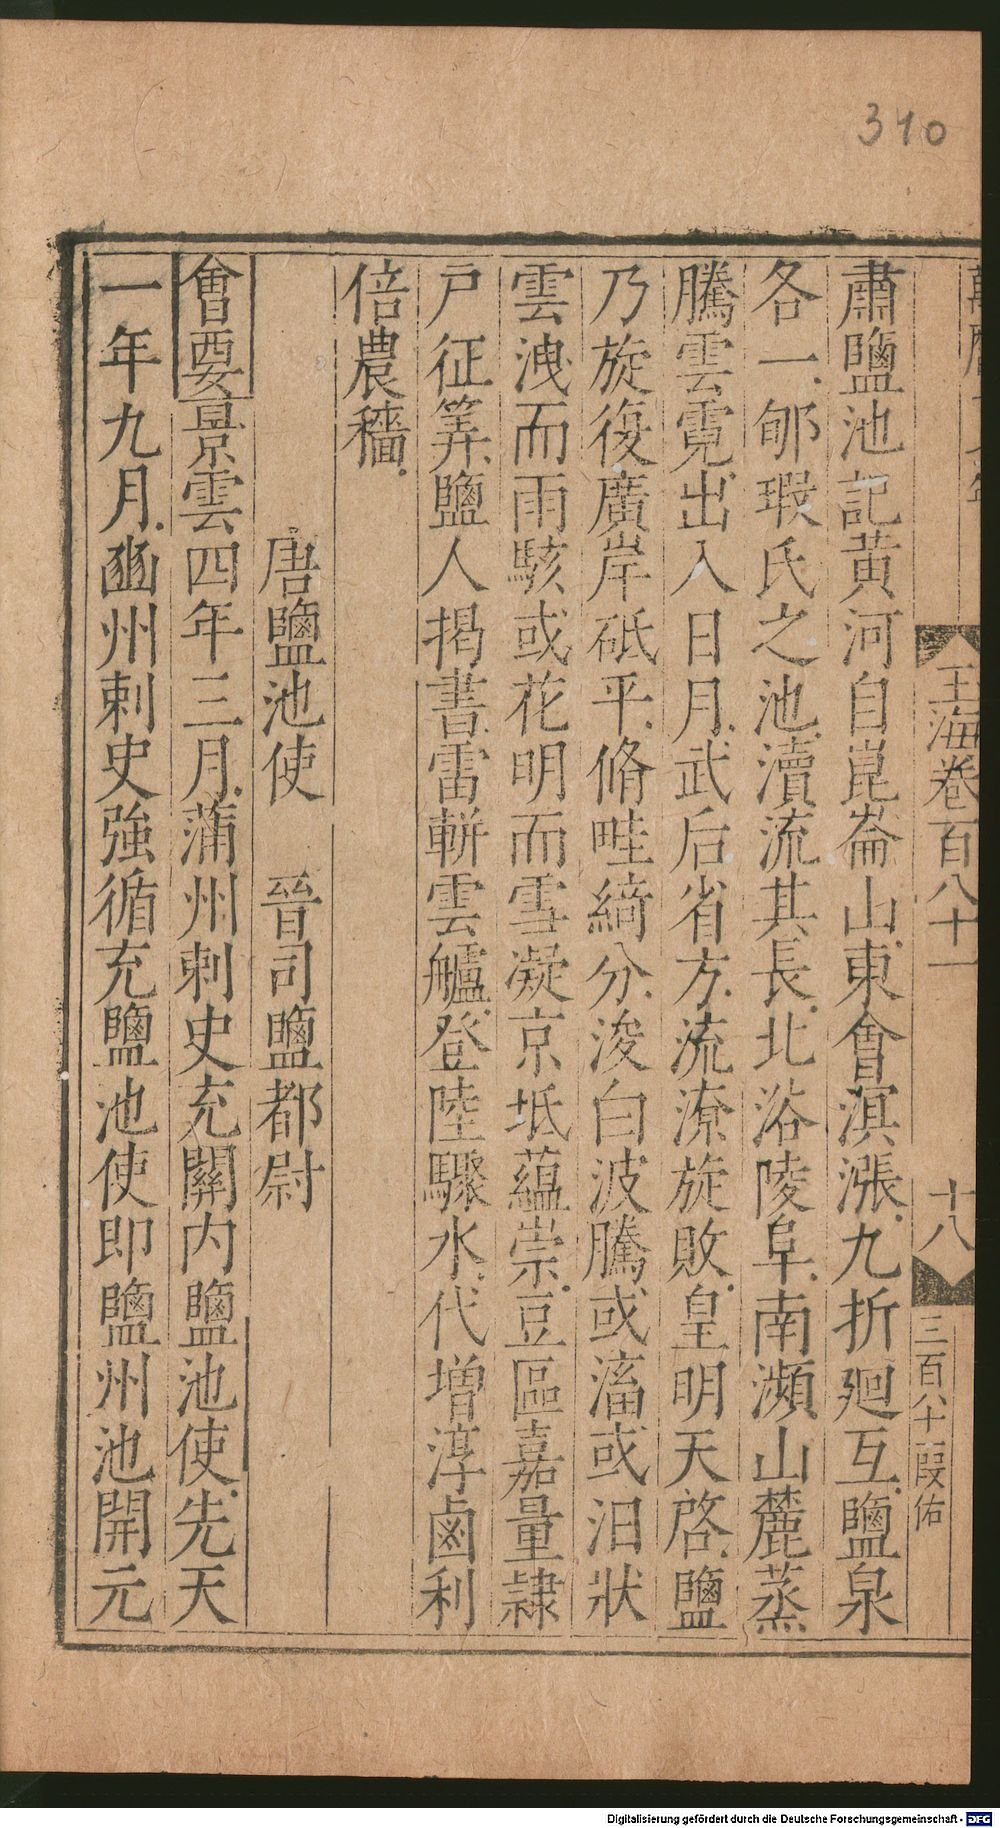 340
玉海卷百八十一
十八
三百八十叚佑
肅鹽池記黄河自崑崙山東會溟漲九折廻互鹽泉
各一郇瑕氏之池瀆流其長北浴陵阜南瀕山麓蒸
騰雲霓出入日月武后省方流潦旋敗皇明天啓鹽
乃旋復廣岸砥平脩畦綺分浚白波騰或滀或汩狀
雲洩而雨駭或花明而雪凝京坻藴崇豆區嘉量隷
戸征筭鹽人掲書雷軿雲艫登陸驟水代増淳鹵利
倍農穡
唐鹽池使 晉司鹽都尉
會要景雲四年三月蒲州刺史充關内鹽池使先天
一年九月豳州刺史強循充鹽池使即鹽州池開元
Digitalisierung gefördert durch die Deutsche Forschungsgemeinschaft - DFG